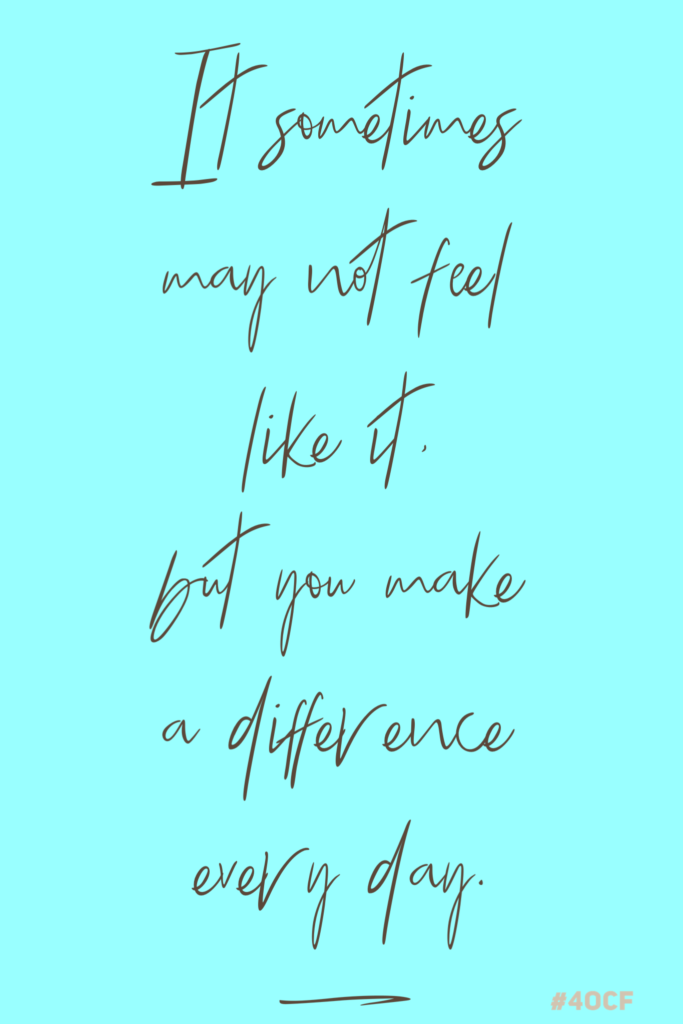 It sometimes
may not feel
like it,
but you make
a difference
every day.
#40CF